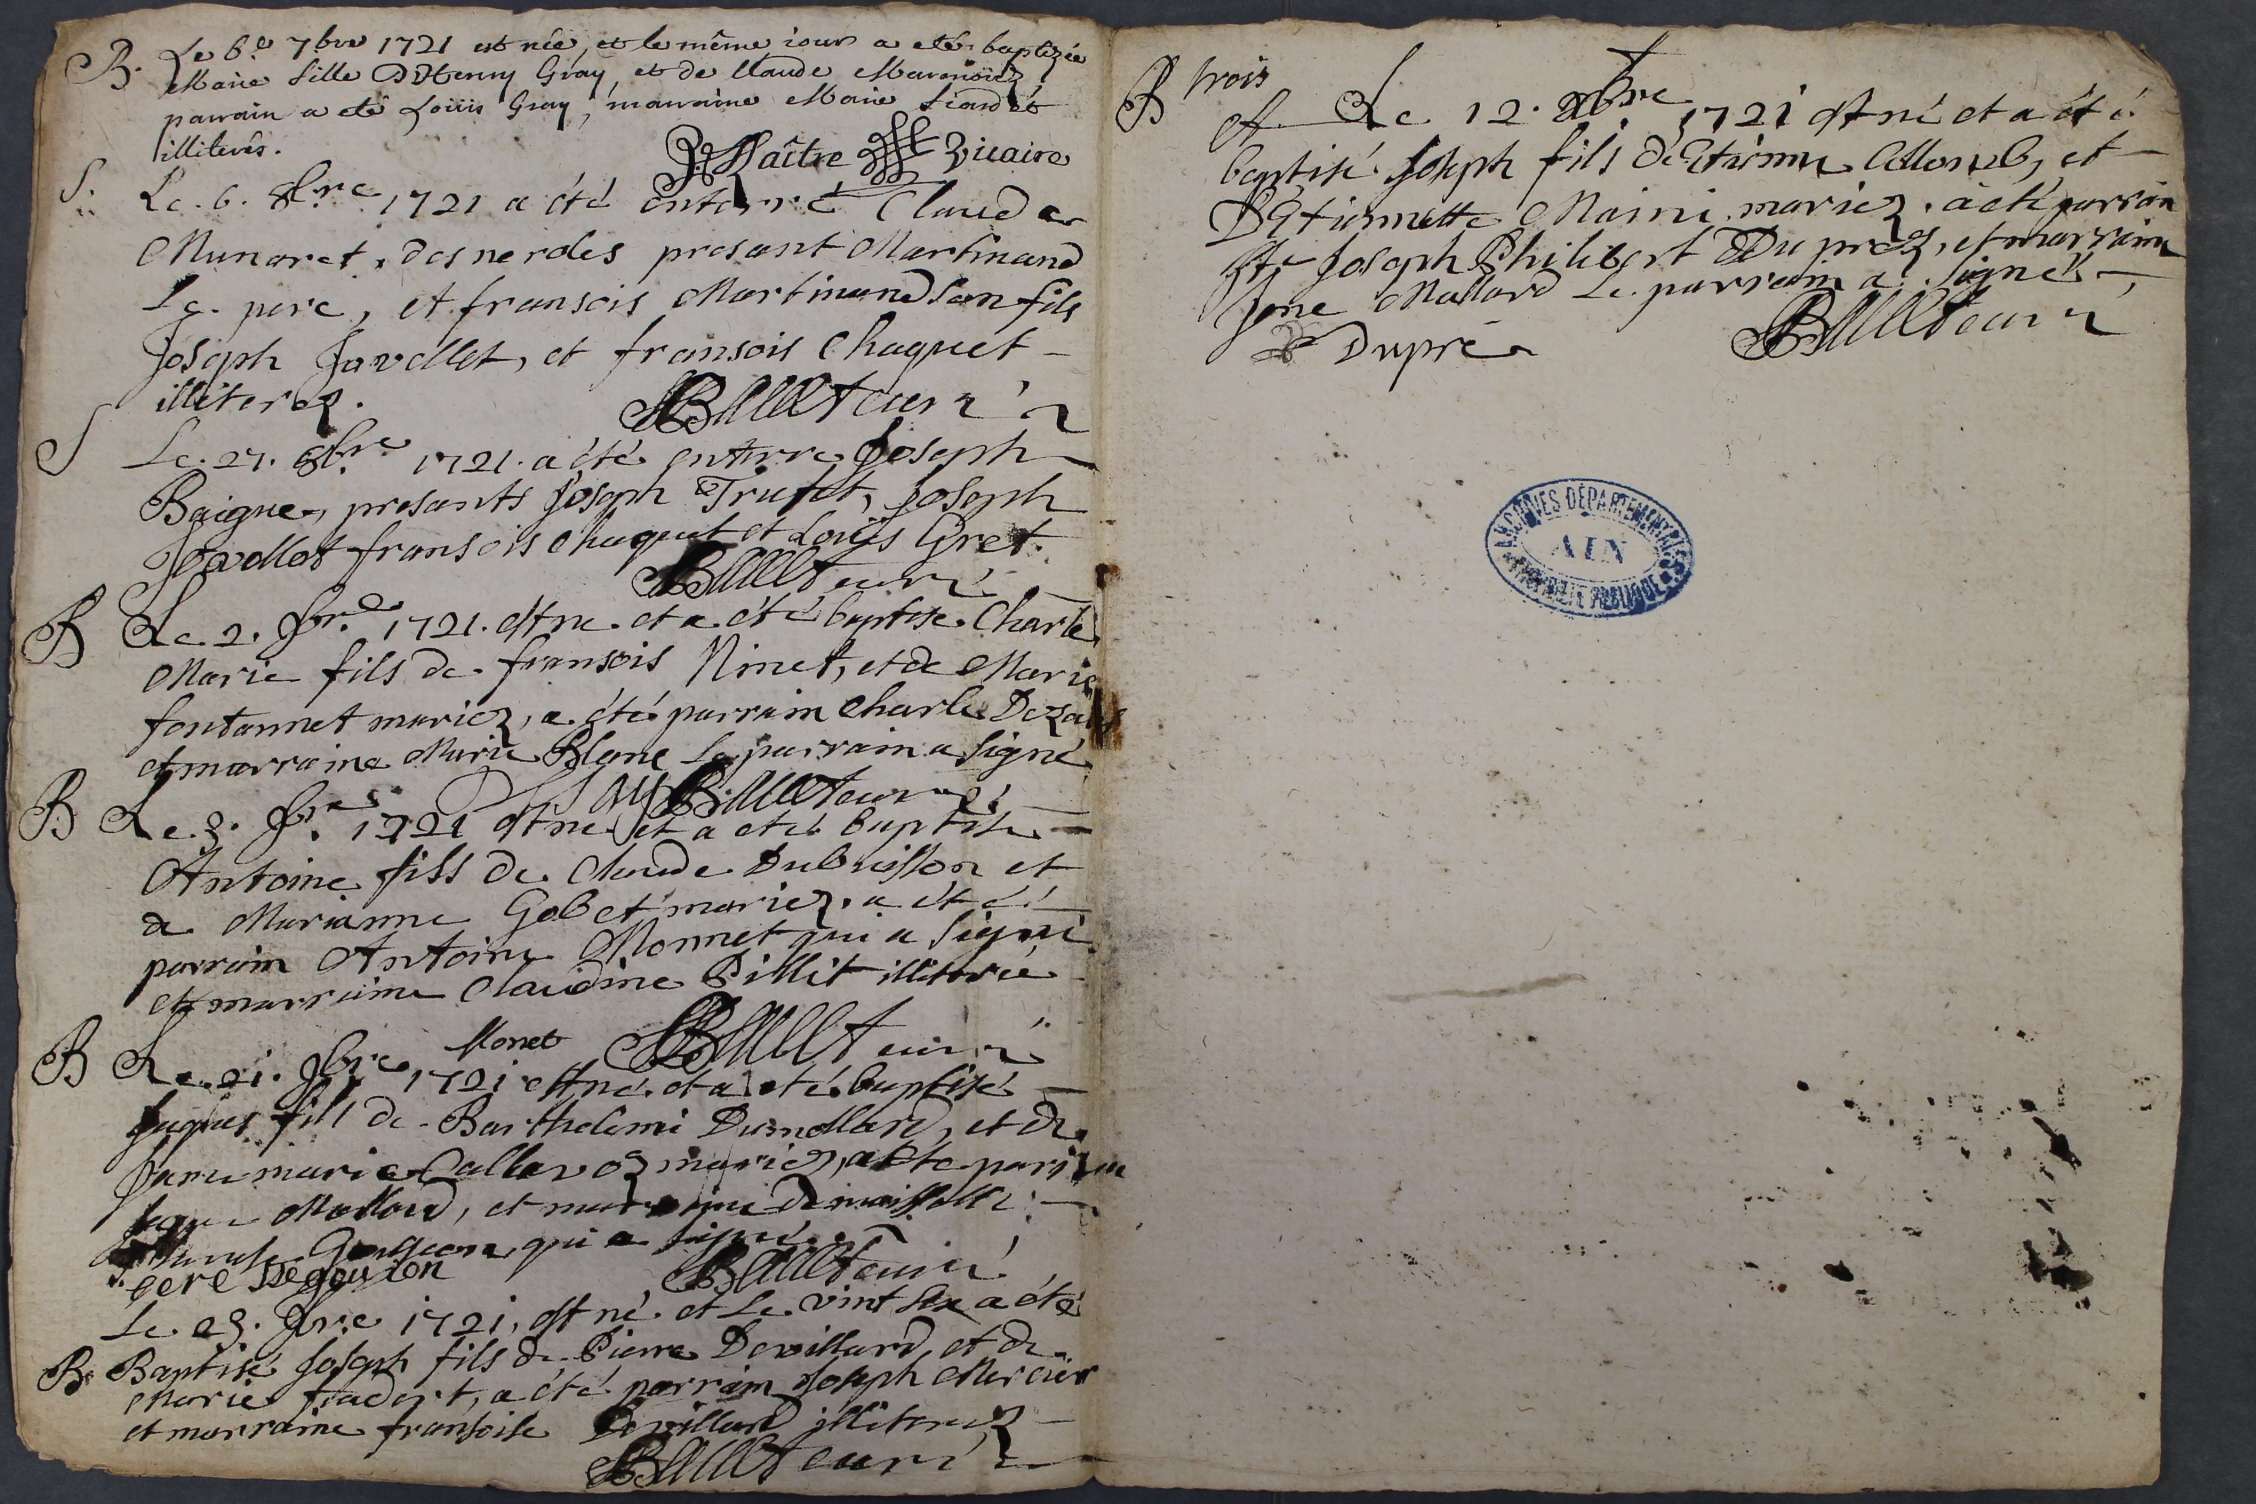 B. Le 6e 7bre 1721 est née, et le même jour a eté baptizée
Marie fille D'Henry Gray et de Claude
parrain a eté Loüis Gray, marraine Marie
illiterés.
Maître Vicaire
S. Le. 6. 8bre 1721 a été enterré Claude
Munaret, des neroles presant Martinand
Le. pere, et fransois Martinand son fils
Joseph Javellet, et fransois Chaquet
illiterez.
Ballet curé
S Le. 27. 8bre 1721. a été enterre Joseph
Baigne, presants Joseph Trufet, Joseph
Javellot fransois Chaquet et Loüis Gret.
Ballet curé
B Le. 2. 9bre 1721. est ne. et a été baptise. Charle
Marie fils de. fransois Ninet, et de Marie
fontannet mariez, a. été parrain Charle
et marraine Marie Blanc Le parrain a signé
Ballet curé
B Le. 3. 9bre 1721 est ne et a eté baptise
Antoine fils de. Claude Dubuisson et
de Marianne Gobet mariez. a été
parrain Antoine Monnet qui a signé
et marraine Claudine Pillit illiterée
Monet Ballet curé
B Le. 21. 9bre 1721 est né. et a eté baptisé
Jaques fils de. Barthelemi Dumollard, et de
Jane marie Callavoz mariez, a ete parrain
Jaque Mollard, et marraine demoiselle
qui a signé.
Degoujon Ballet curé
Le 23. 9bre 1721, est né. et Le. vint six a été
B. Baptisé Joseph fils de Pierre Devillard, et de
Marie, a été parrain Joseph Mercier
et marraine fransoise Devillard illiterez
Ballet curé
B trois
Le 12. Xbre 1721 est né et a été
baptisé Joseph fils d'Etienne, et
D'Etiennette mariez. a été parrain
Joseph Philibert Du prez, et marraine
Jane Mollard Le. parrain a signé
Dupré Ballet curé
ARCHIVES DÉPARTEMENTALES
AIN
PUBLIQUE